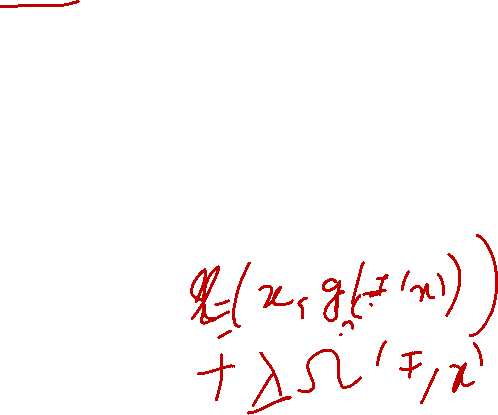 L(x, g(f(x)))
+ λΩ(f, x)